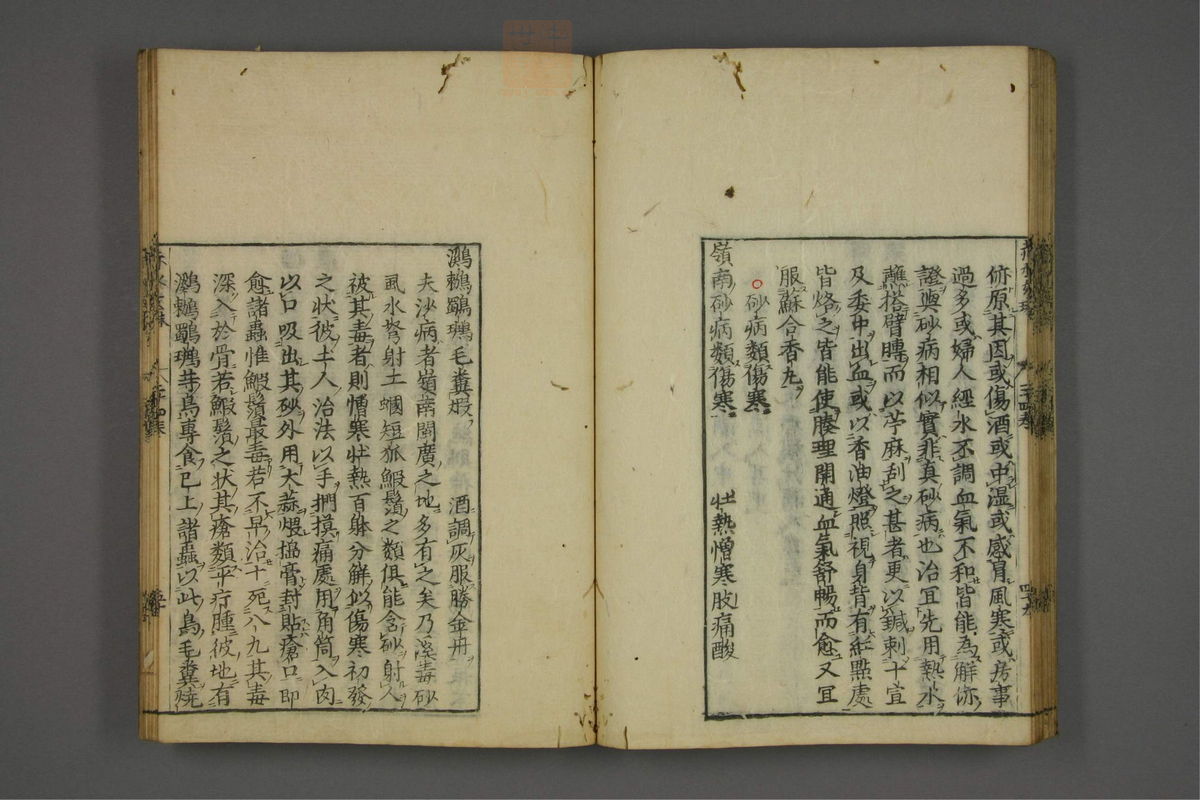 俯原其因或傷酒或中湿或感冐風寒或房事
過多或婦人經水不調血氣不和皆能為觧㑊
證與砂病相似實非真砂病也治冝先用熱水
蘸搭臂膊而以苧麻刮之甚者更以鍼刺十宣
及委中出血或以香油燈照視身背有紅點處
皆烙之皆能使腠理開通血氣舒暢而愈又冝
服蘇合香丸
○砂病類傷寒
嶺南砂病類傷寒 壮熱憎寒肢痛酸
毛糞煆 酒調灰服勝金丹
夫沙病者嶺南閩廣之地多有之矣乃溪毒砂
虱水弩射土蟈短狐鰕鬚之類俱能含砂射人
被其毒者則憎寒壮熱百躰分觧似傷寒初發
之状彼土人治法以手捫摸痛處用角筒入肉
以口吸出其砂外用大蒜煨搗膏封貼瘡口即
愈諸蟲惟鰕鬚最毒若不早治十死八九其毒
深入於骨若鰕鬚之状其瘡類乎疔腫彼地有
鳥專食已上諸蟲以此鳥毛糞燒